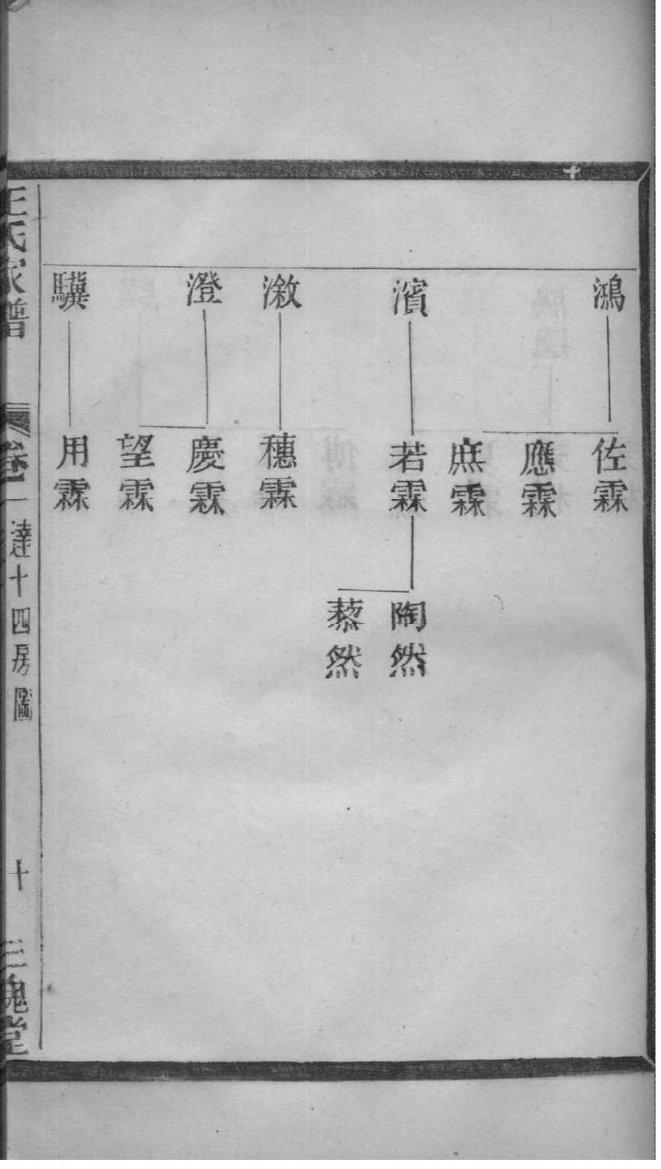 鴻
濱
潡
澄
驥
佐霖
應霖
庶霖
若霖
穗霖
慶霖
望霖
用霖
陶然
藜然
王氏家譜
卷一
達十四房圖
十
三槐堂